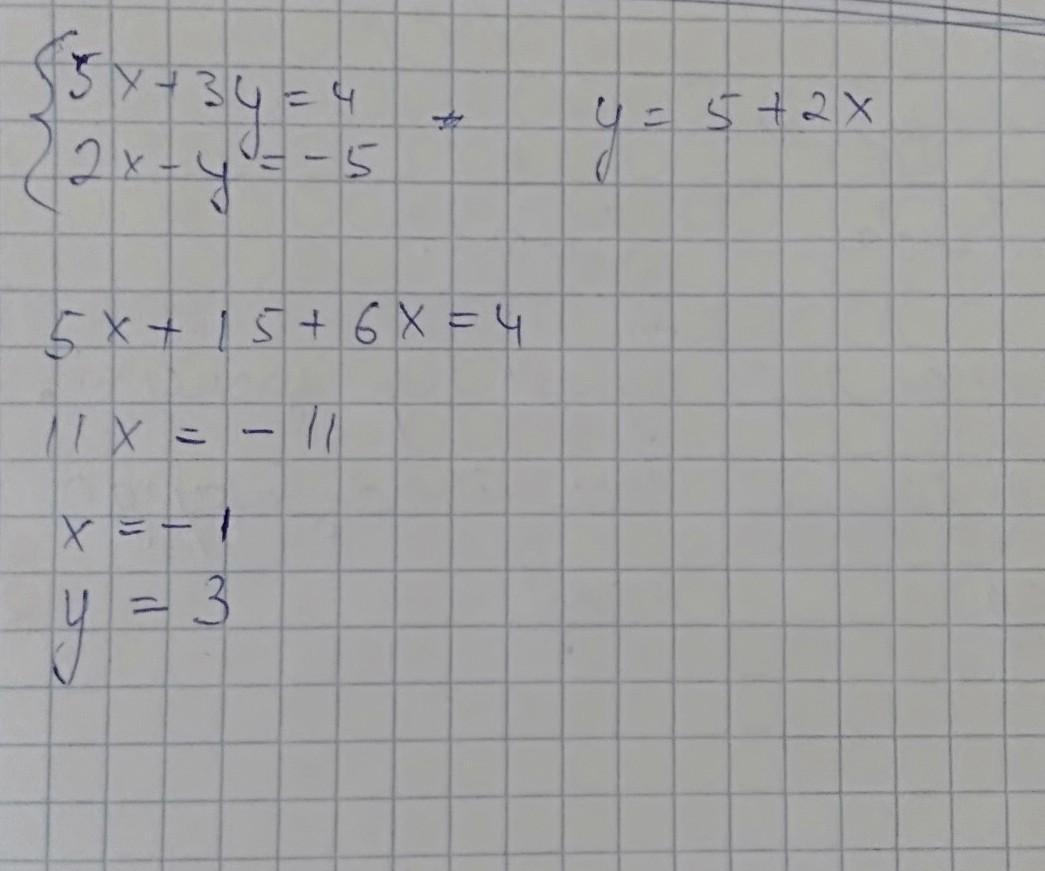 5x+3y=4
2x-y=-5
y=5+2x
5x+15+6x=4
11x=-11
x=-1
y=3